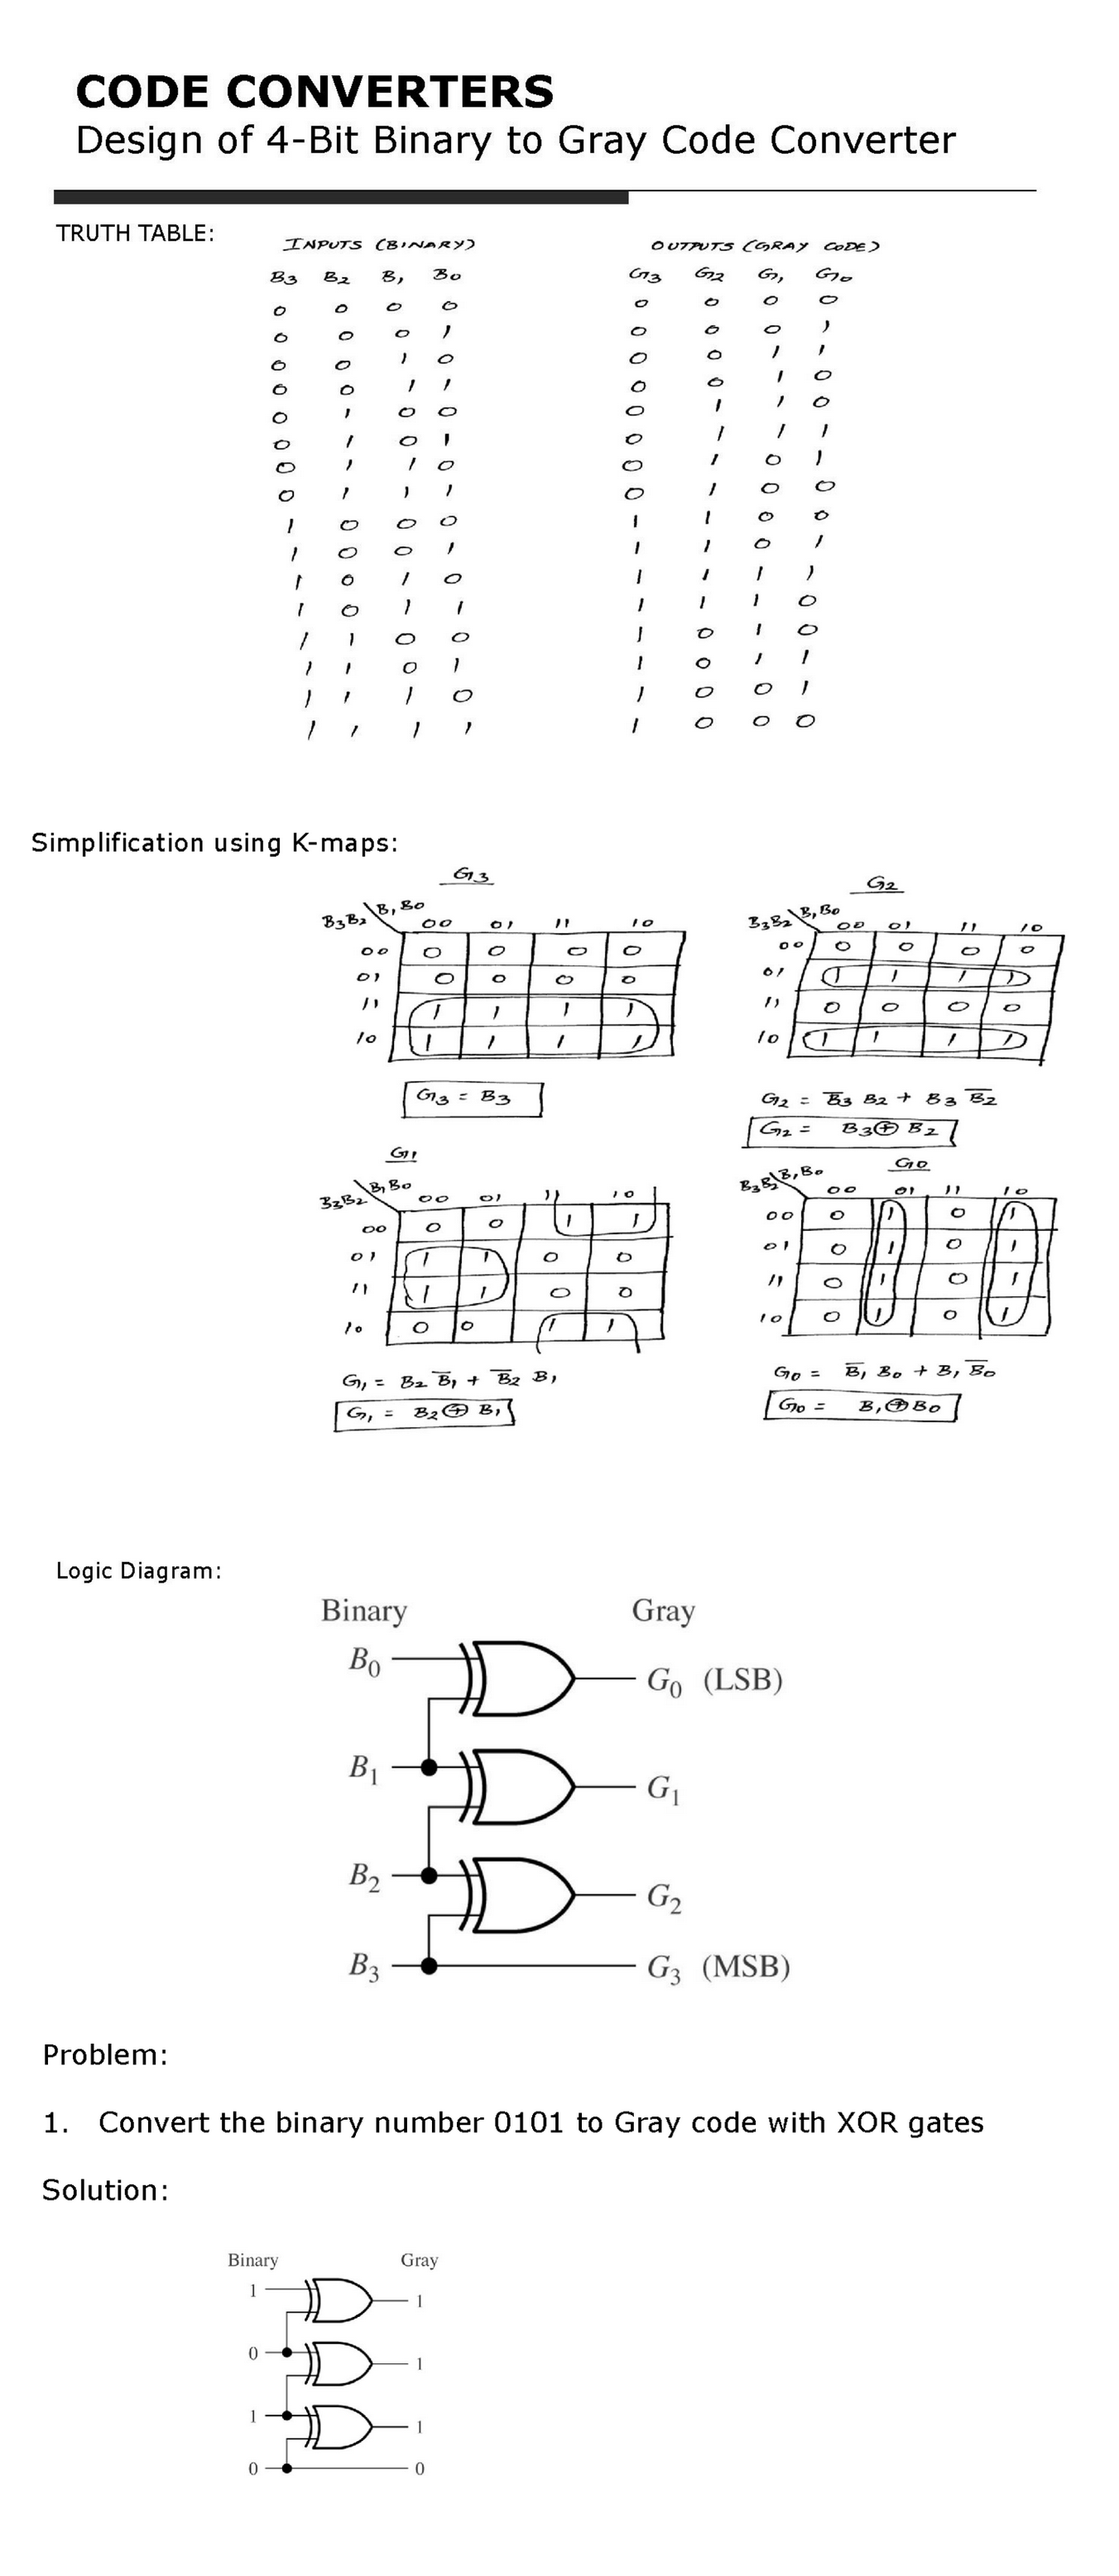 CODE CONVERTERS
Design of 4-Bit Binary to Gray Code Converter
TRUTH TABLE:
INPUTS (BINARY) OUTPUTS (GRAY CODE)
B3 B2 B1 B0 G3 G2 G1 G0
0 0 0 0 0 0 0 0
0 0 0 1 0 0 0 1
0 0 1 0 0 0 1 1
0 0 1 1 0 0 1 0
0 1 0 0 0 1 1 0
0 1 0 1 0 1 1 1
0 1 1 0 0 1 0 1
0 1 1 1 0 1 0 0
1 0 0 0 1 1 0 0
1 0 0 1 1 1 0 1
1 0 1 0 1 1 1 1
1 0 1 1 1 1 1 0
1 1 0 0 1 0 1 0
1 1 0 1 1 0 1 1
1 1 1 0 1 0 0 1
1 1 1 1 1 0 0 0
Simplification using K-maps:
G3
B3B2 B1B0
00 01 11 10
00 0 0 0 0
01 0 0 0 0
11 1 1 1 1
10 1 1 1 1
G3 = B3
G2
B3B2 B1B0
00 01 11 10
00 0 0 0 0
01 1 1 1 1
11 0 0 0 0
10 1 1 1 1
G2 = B̅3 B2 + B3 B̅2
G2 = B3 ⊕ B2
G1
B3B2 B1B0
00 01 11 10
00 0 0 1 1
01 1 1 0 0
11 1 1 0 0
10 0 0 1 1
G1 = B2 B̅1 + B̅2 B1
G1 = B2 ⊕ B1
G0
B3B2 B1B0
00 01 11 10
00 0 1 0 1
01 0 1 0 1
11 0 1 0 1
10 0 1 0 1
G0 = B̅1 B0 + B1 B̅0
G0 = B1 ⊕ B0
Logic Diagram:
Binary Gray
B0 G0 (LSB)
B1 G1
B2 G2
B3 G3 (MSB)
Problem:
1. Convert the binary number 0101 to Gray code with XOR gates
Solution:
Binary Gray
1 1
0 1
1 1
0 0